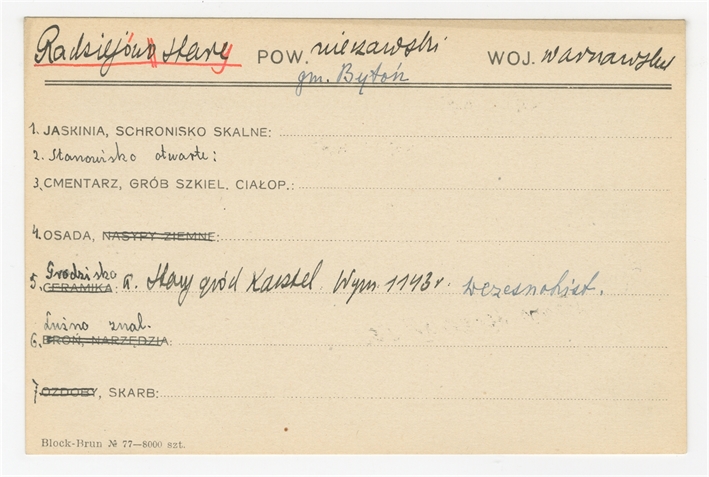 Radziejów Stary POW. nieszawski WOJ. warszawskie
gm. Bytoń
1. JASKINIA, SCHRONISKO SKALNE:
2. Stanowisko otwarte:
3. CMENTARZ, GRÓB SZKIEL. CIAŁOP.:
4. OSADA, NASYPY ZIEMNE:
Grodzisko
5. CERAMIKA: Stary gród kasztel Wym 1143 r. wczesnohist.
Luźno znal.
6. BROŃ, NARZĘDZIA:
7. OZDOBY, SKARB:
Block-Brun № 77—8000 szt.